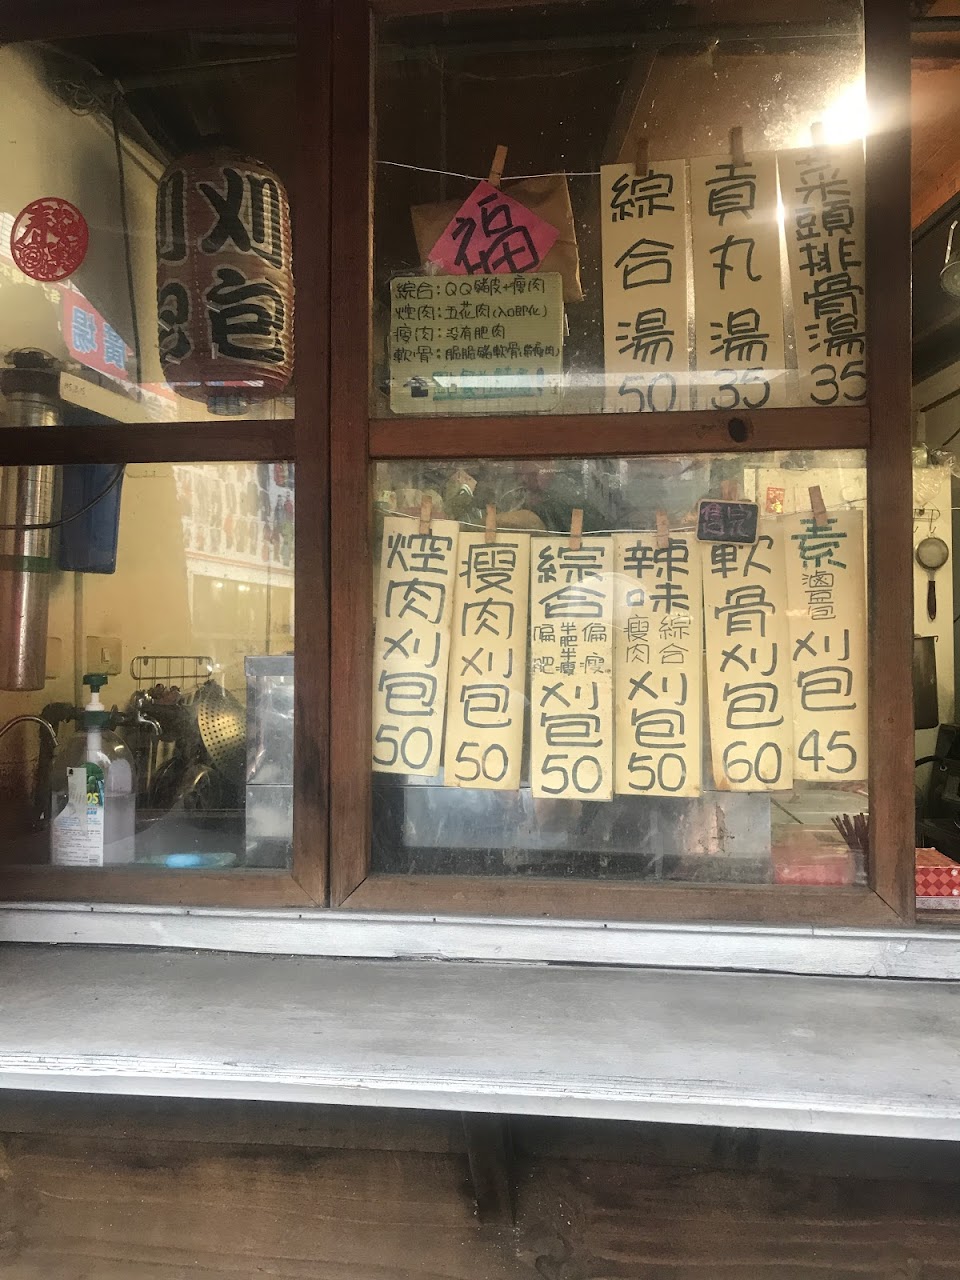 刈包
福
綜合:QQ豬皮+瘦肉
焢肉:五花肉(入口即化)
瘦肉:沒有肥肉
軟骨:脆脆豬軟骨(帶瘦肉)
綜合湯50
貢丸湯35
菜頭排骨湯35
春
貢湯
焢肉刈包50
瘦肉刈包50
綜合
偏肥
半肥半瘦
偏瘦
刈包50
辣味
瘦肉
綜合
刈包50
售完
軟骨刈包60
素
滷豆包
刈包45